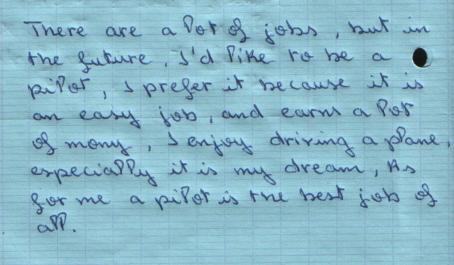 There are a lot of jobs, but in
the future, I'd like to be a
pilot, I prefer it because it is
an easy job, and earns a lot
of mony, I enjoy driving a plane,
especially it is my dream, As
for me a pilot is the best job of
all.